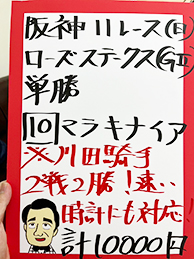 阪神11レース(日)
ローズステークス(GⅡ)
単勝
10マラキナイア
※川田騎手
2戦2勝!速い
時計にも対応!!
計10000円